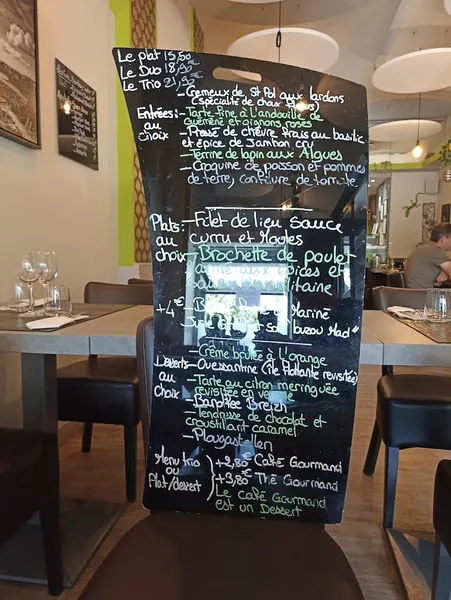 Le plat 15,50€
Le Duo 18,90€
Le Trio 21,90€
- Crémeux de St Pol aux lardons
(spécialité de choux fleurs)
Entrées: - Tarte fine à l'andouille de
au Guémené et oignons roses
choix - Pressé de chèvre frais au basilic
et épice de Jambon cru
- Terrine de lapin aux Algues
- Croquine de poisson et pommes
de terre, confiture de tomate
Plats: - Filet de lieu sauce
au curry et Moules
choix - Brochette de poulet
aux épices et
+4€
Mariné
Jus
et son Kouzou Mad"
- Crème brûlée à l'orange
Desserts - Ouessantine (île flottante revisitée)
au - Tarte au citron meringuée
choix revisitée en verrine
- Banofee Breizh
- Tendresse de chocolat et
croustillant caramel
- Plougastellen
Menu trio +2,80€ Café Gourmand
ou
Plat/dessert +3,80€ Thé Gourmand
Le café Gourmand
est un Dessert